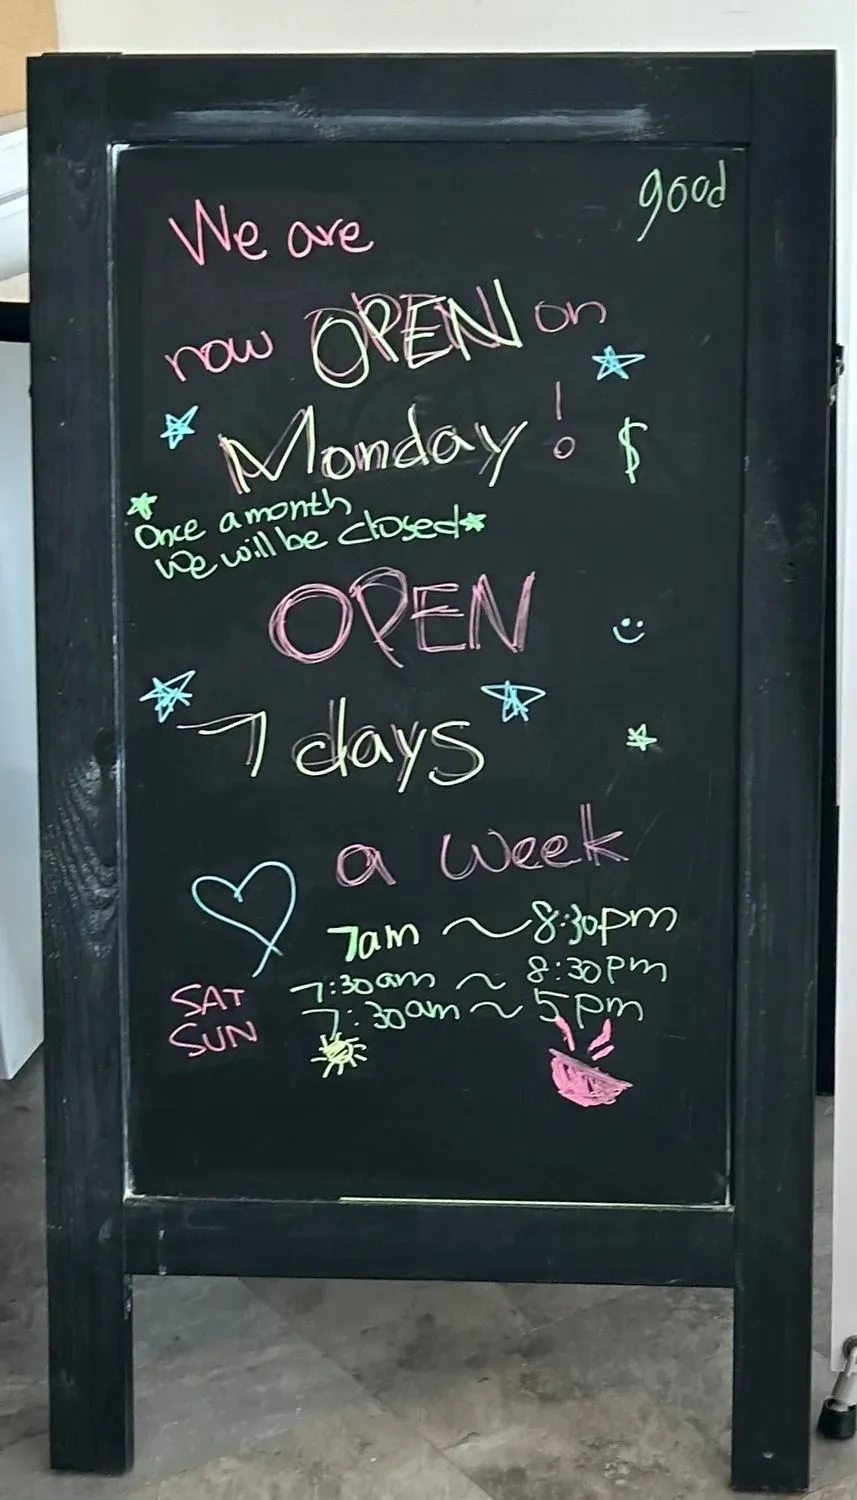 good
We are
now OPEN on
Monday!
$
Once a month
We will be closed
OPEN
7 days
a week
7am ~ 8:30pm
SAT 7:30am ~ 8:30pm
SUN 7:30am ~ 5pm